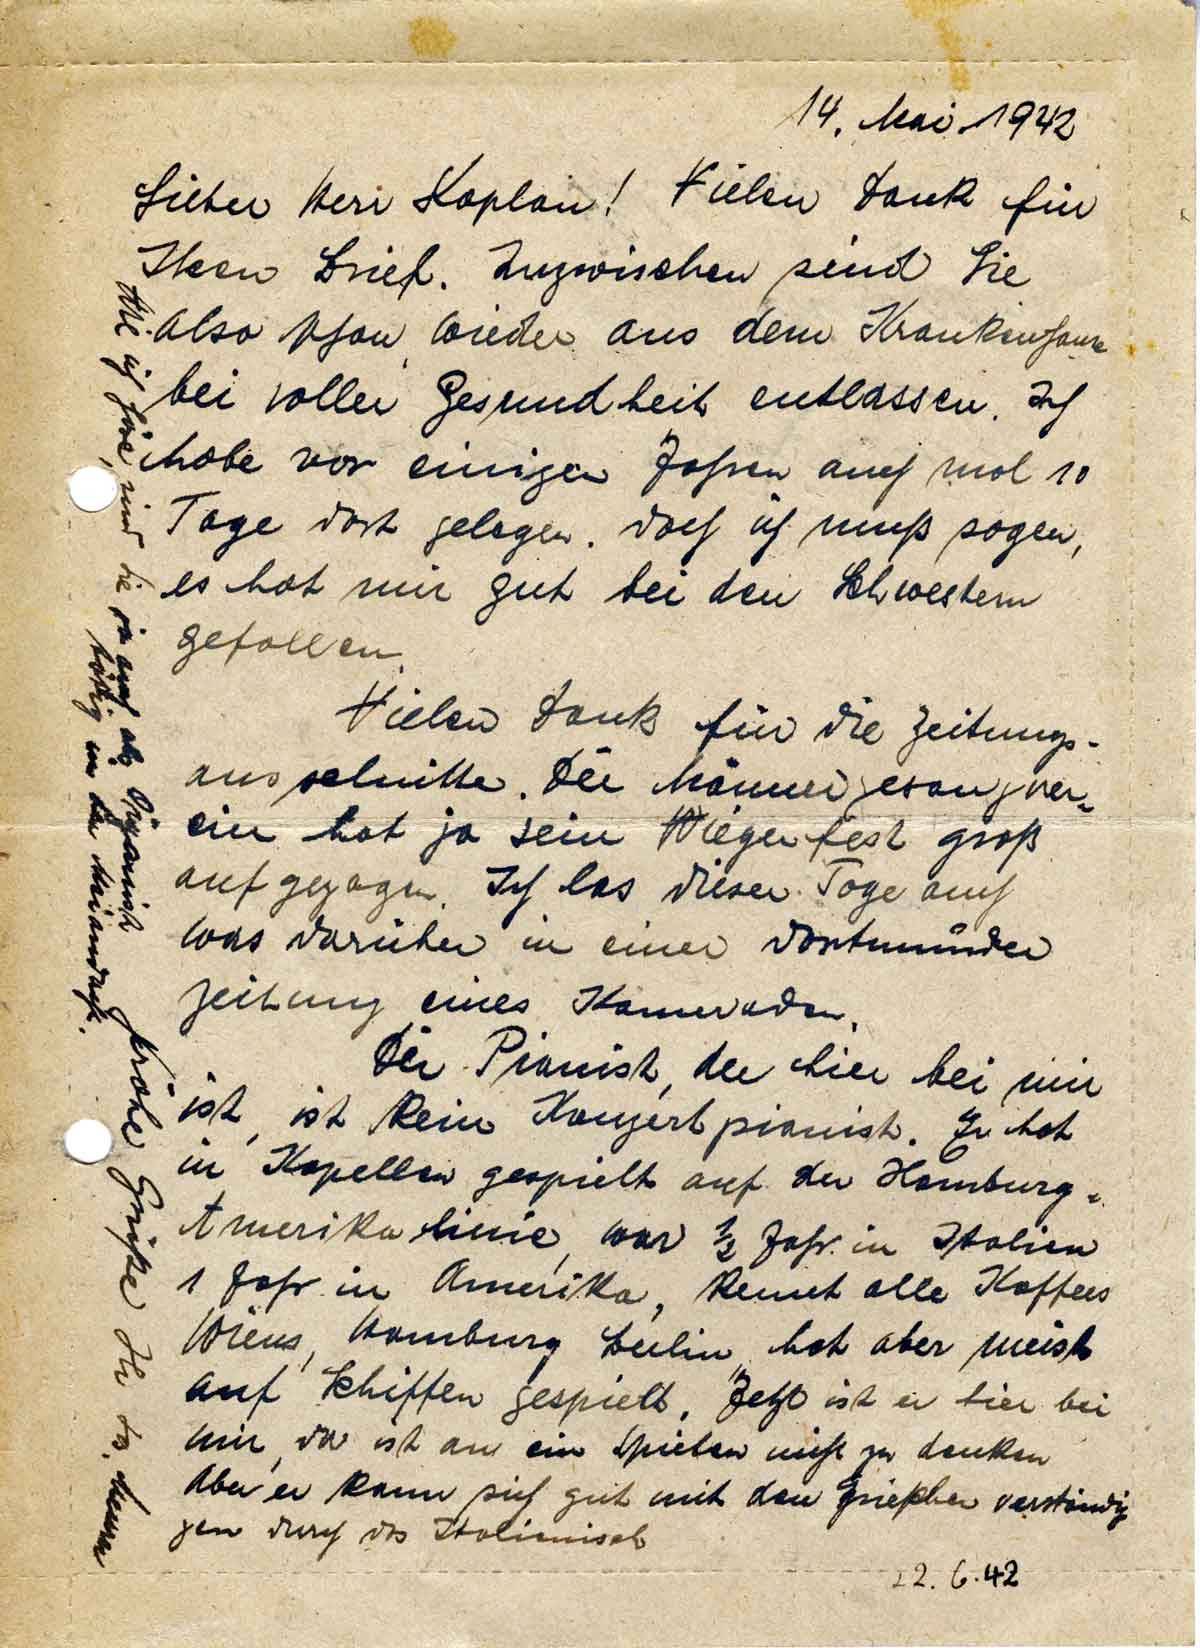 14. Mai. 1942
Lieber Herr Kaplan! Vielen Dank für
Ihren Brief. Inzwischen sind Sie
also schon wieder aus dem Krankenhause
bei voller Gesundheit entlassen. Ich
habe vor einigen Jahren auch mal 10
Tage dort gelegen. Doch ich muß sagen,
es hat mir gut bei den Schwestern
gefallen.
Vielen Dank für die Zeitungs-
ausschnitte. Der Männergesangver-
ein hat ja sein Wiegenfest groß
aufgezogen. Ich las dieser Tage auch
was darüber in einer Dortmunder
Zeitung eines Kameraden.
Der Pianist, der hier bei mir
ist, ist kein Konzertpianist. Er hat
in Kapellen gespielt auf der Hamburg-
Amerikalinie, war ½ Jahr in Italien
1 Jahr in Amerika, kennt alle Kaffees
Wiens, Hamburg Berlin, hat aber meist
auf Schiffen gespielt. Jetzt ist er hier bei
mir, da ist an ein Spielen nicht zu denken
Aber er kann sich gut mit den Griechen verständi
gen durch das Italienisch
22.6.42
Wie ich höre, sind Sie ja auch als Organist
tätig in der Maiandacht.
Frohe Grüße Ihr